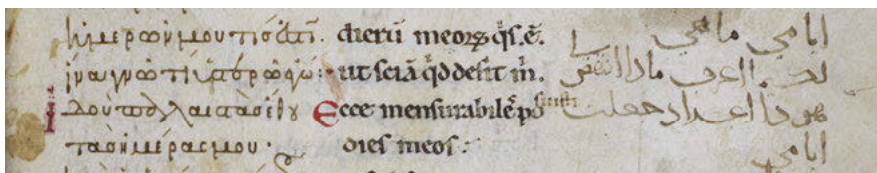 ἡμερῶν μου τίσ ἐστῖ. dierū meoꝝ q̇s. ē. ايامي ما هي
ἵνα γνῶ τί ὑστερῶ ἐγώ: ut sciā q̇d desit m̄. لكيما اعرف ماذا انقص
Ιδοὺ παλαιστὰσ ἔθȣ Ecce mensurabiles posuisti هوذا اعداد جعلت
τὰσ ἡμέρασ μου· dies meos: ايامي